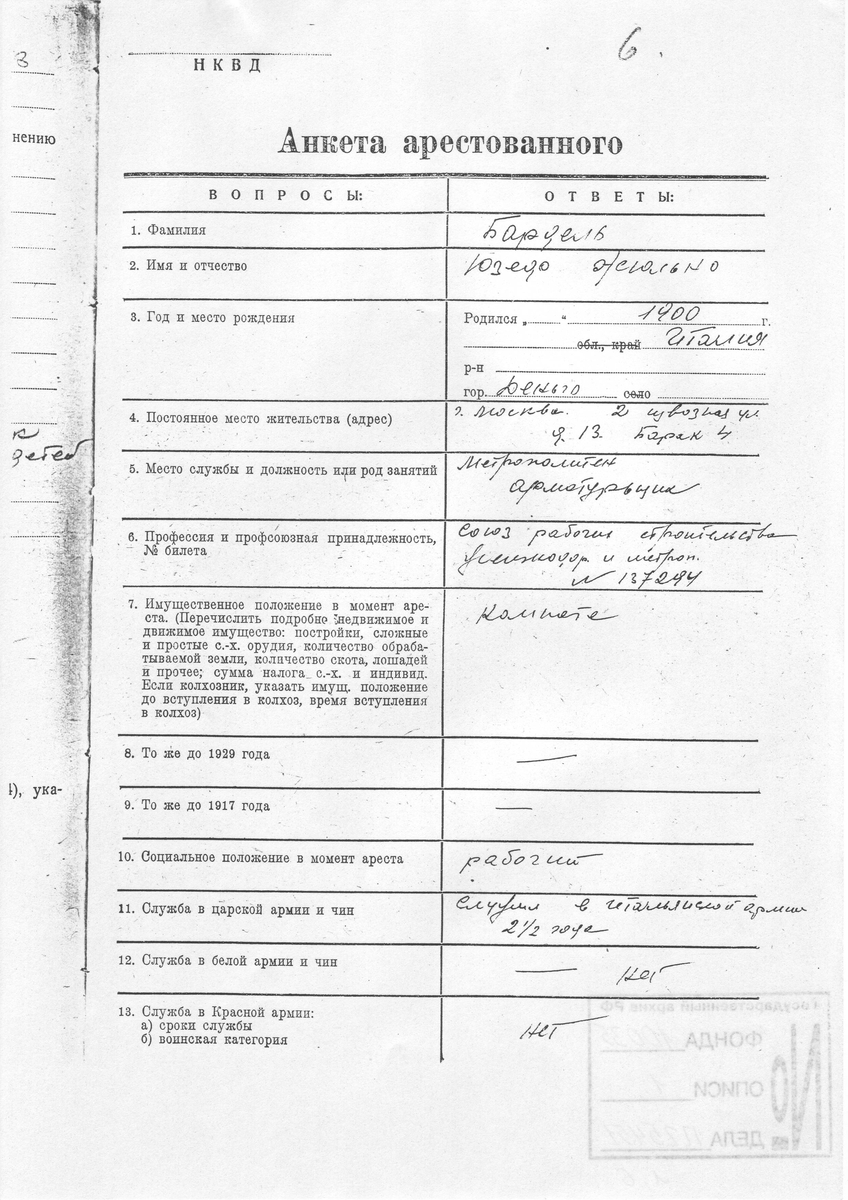 3
6.
НКВД
нению
Анкета арестованного
ВОПРОСЫ:
ОТВЕТЫ:
1. Фамилия
Бардель
2. Имя и отчество
Юзедо Жильно
3. Год и место рождения
Родился „ “ 1900 г.
обл., край Италия
р-н
гор. село
4. Постоянное место жительства (адрес)
г. Москва. 2
д. 13. Барак 4
к
детей
5. Место службы и должность или род занятий
Метрополитен
арматурьщик
6. Профессия и профсоюзная принадлежность,
№ билета
Союз рабочих строительства
и метроп.
N 137294
7. Имущественное положение в момент аре-
ста. (Перечислить подробно недвижимое и
движимое имущество: постройки, сложные
и простые с.-х. орудия, количество обраба-
тываемой земли, количество скота, лошадей
и прочее; сумма налога с.-х. и индивид.
Если колхозник, указать имущ. положение
до вступления в колхоз, время вступления
в колхоз)
Комната
8. То же до 1929 года
—
), ука-
9. То же до 1917 года
—
10. Социальное положение в момент ареста
рабочий
11. Служба в царской армии и чин
Служил в Итальянской армии
2 1/2 года
12. Служба в белой армии и чин
— нет
13. Служба в Красной армии:
а) сроки службы
б) воинская категория
нет
Государственный архив РФ
ФОНДА
ОПИСИ 1
ДЕЛА